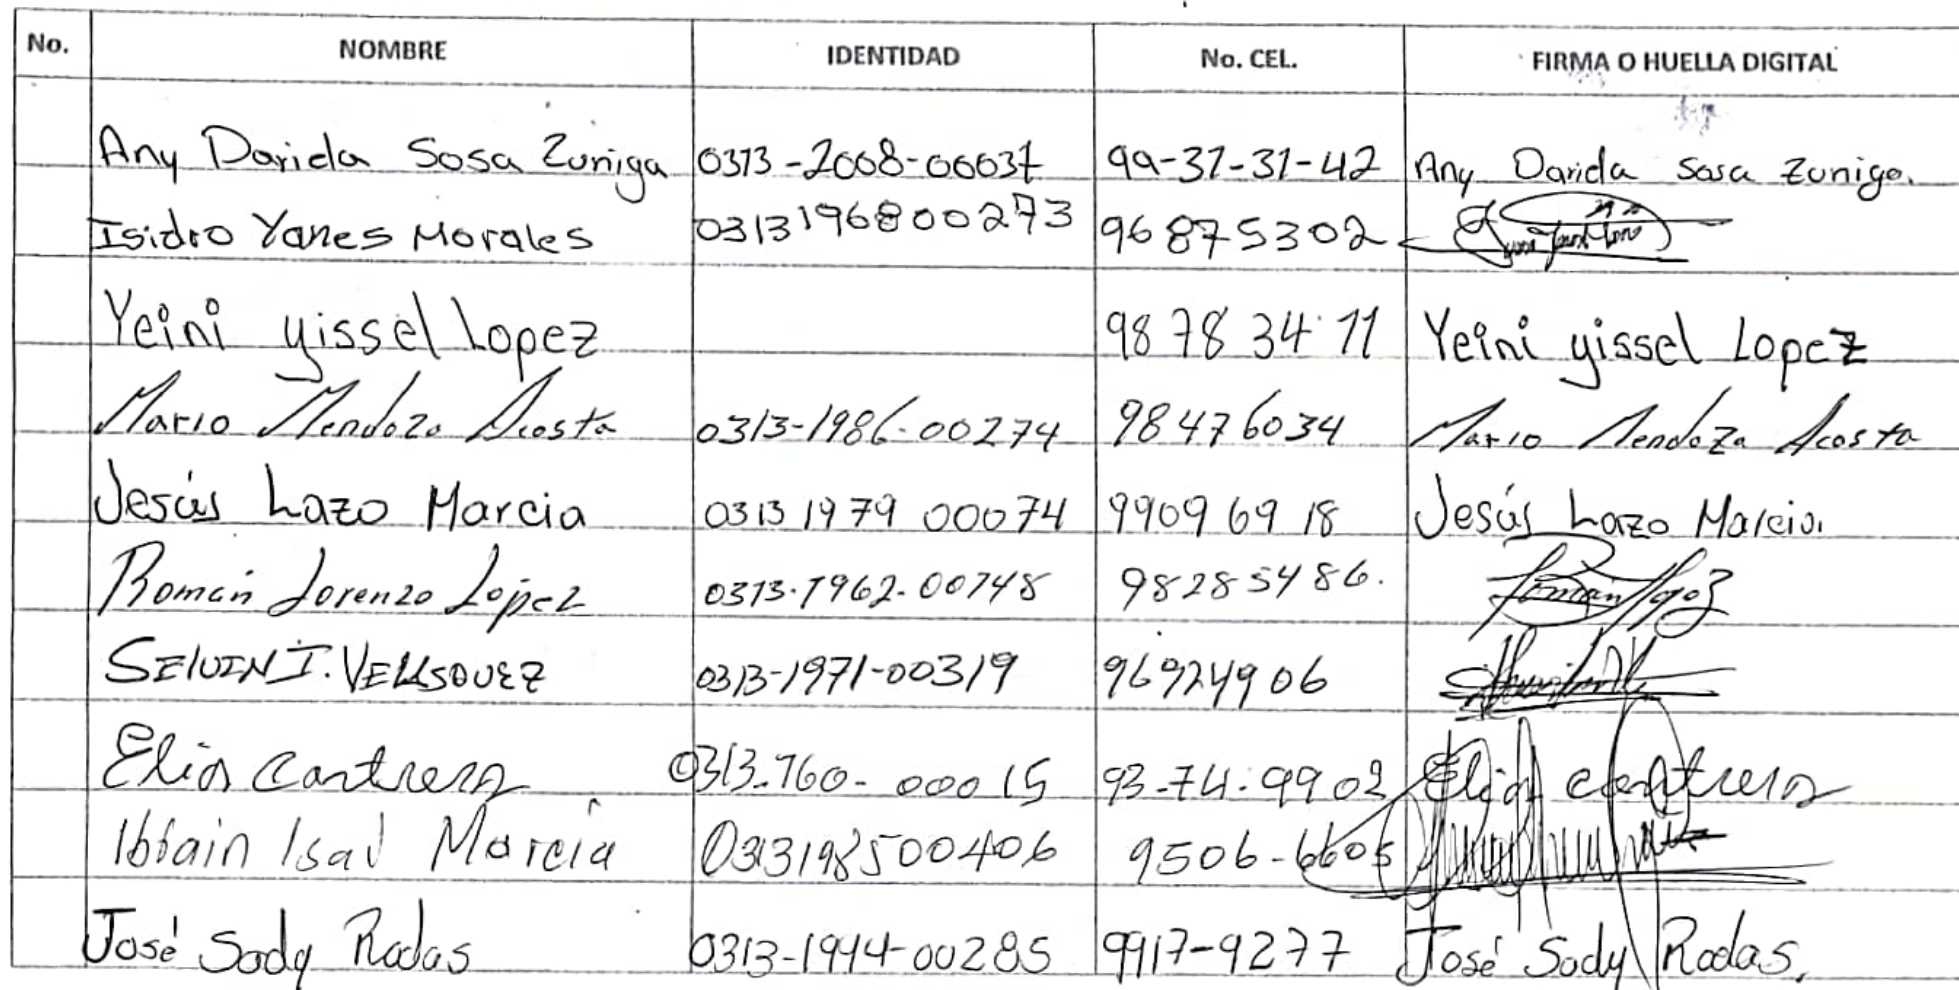 No. NOMBRE IDENTIDAD No. CEL. FIRMA O HUELLA DIGITAL
Any Darida Sosa Zuniga 0313-2008-00037 99-31-31-42 Any Darida Sosa Zuniga.
Isidro Yanes Morales 0313196800273 96875302
Yeini yissel Lopez 98 78 34 11 Yeini yissel Lopez
Mario Mendoza Acosta 0313-1986-00274 98476034 Mario Mendoza Acosta
Jesús Lazo Marcia 0313 1979 00074 9909 69 18 Jesús Lazo Marcia.
Román Lorenzo López 0313-1962-00148 98285486. Román López
SELVIN I. VELASQUEZ 0313-1971-00319 96924906
Elias Contreras 0313-760-00015 93-74-9902 Elias contreras
Isaí Marcía 0313198500406 9506-6605
José Sady Rodas 0313-1994-00285 9917-9277 José Sady Rodas.